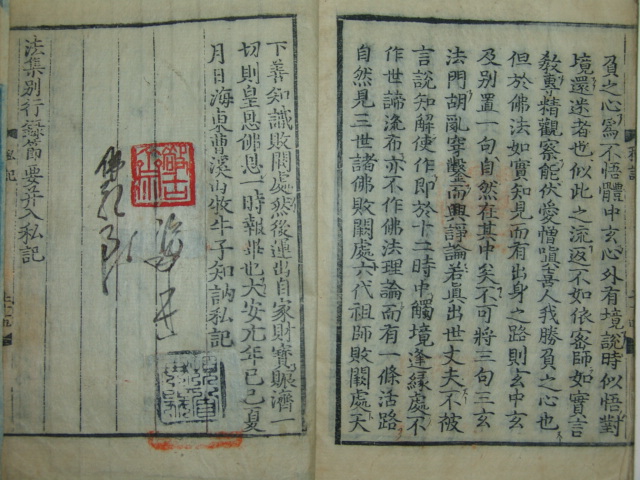 負之心焉不悟體中玄心外有境說時似悟對
境還迷者也似此之流返不如依密師如實言
敎專精觀察能伏愛憎嗔喜人我勝負之心也
但於佛法如實知見而有出身之路則玄中玄
及別置一句自然在其中矣不可將三句三玄
法門胡亂穿鑿而興諍論若眞出世丈夫不被
言說知解使作即於十二時中觸境逢緣處不
作世諦流布亦不作佛法理論而有一條活路
自然見三世諸佛敗闕處六代祖師敗闕處天
下善知識敗闕處然後運出自家財寶賑濟一
切則皇恩佛恩一時報畢也大安元年己巳夏
月日海東曹溪山牧牛子知訥私記
法集別行錄節要幷入私記